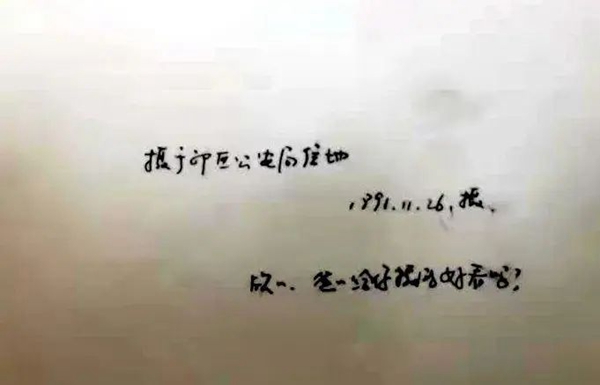 摄于郊区公安局住地
1991.11.26.摄.
欣〻、爸〻给你摄得好看吗?